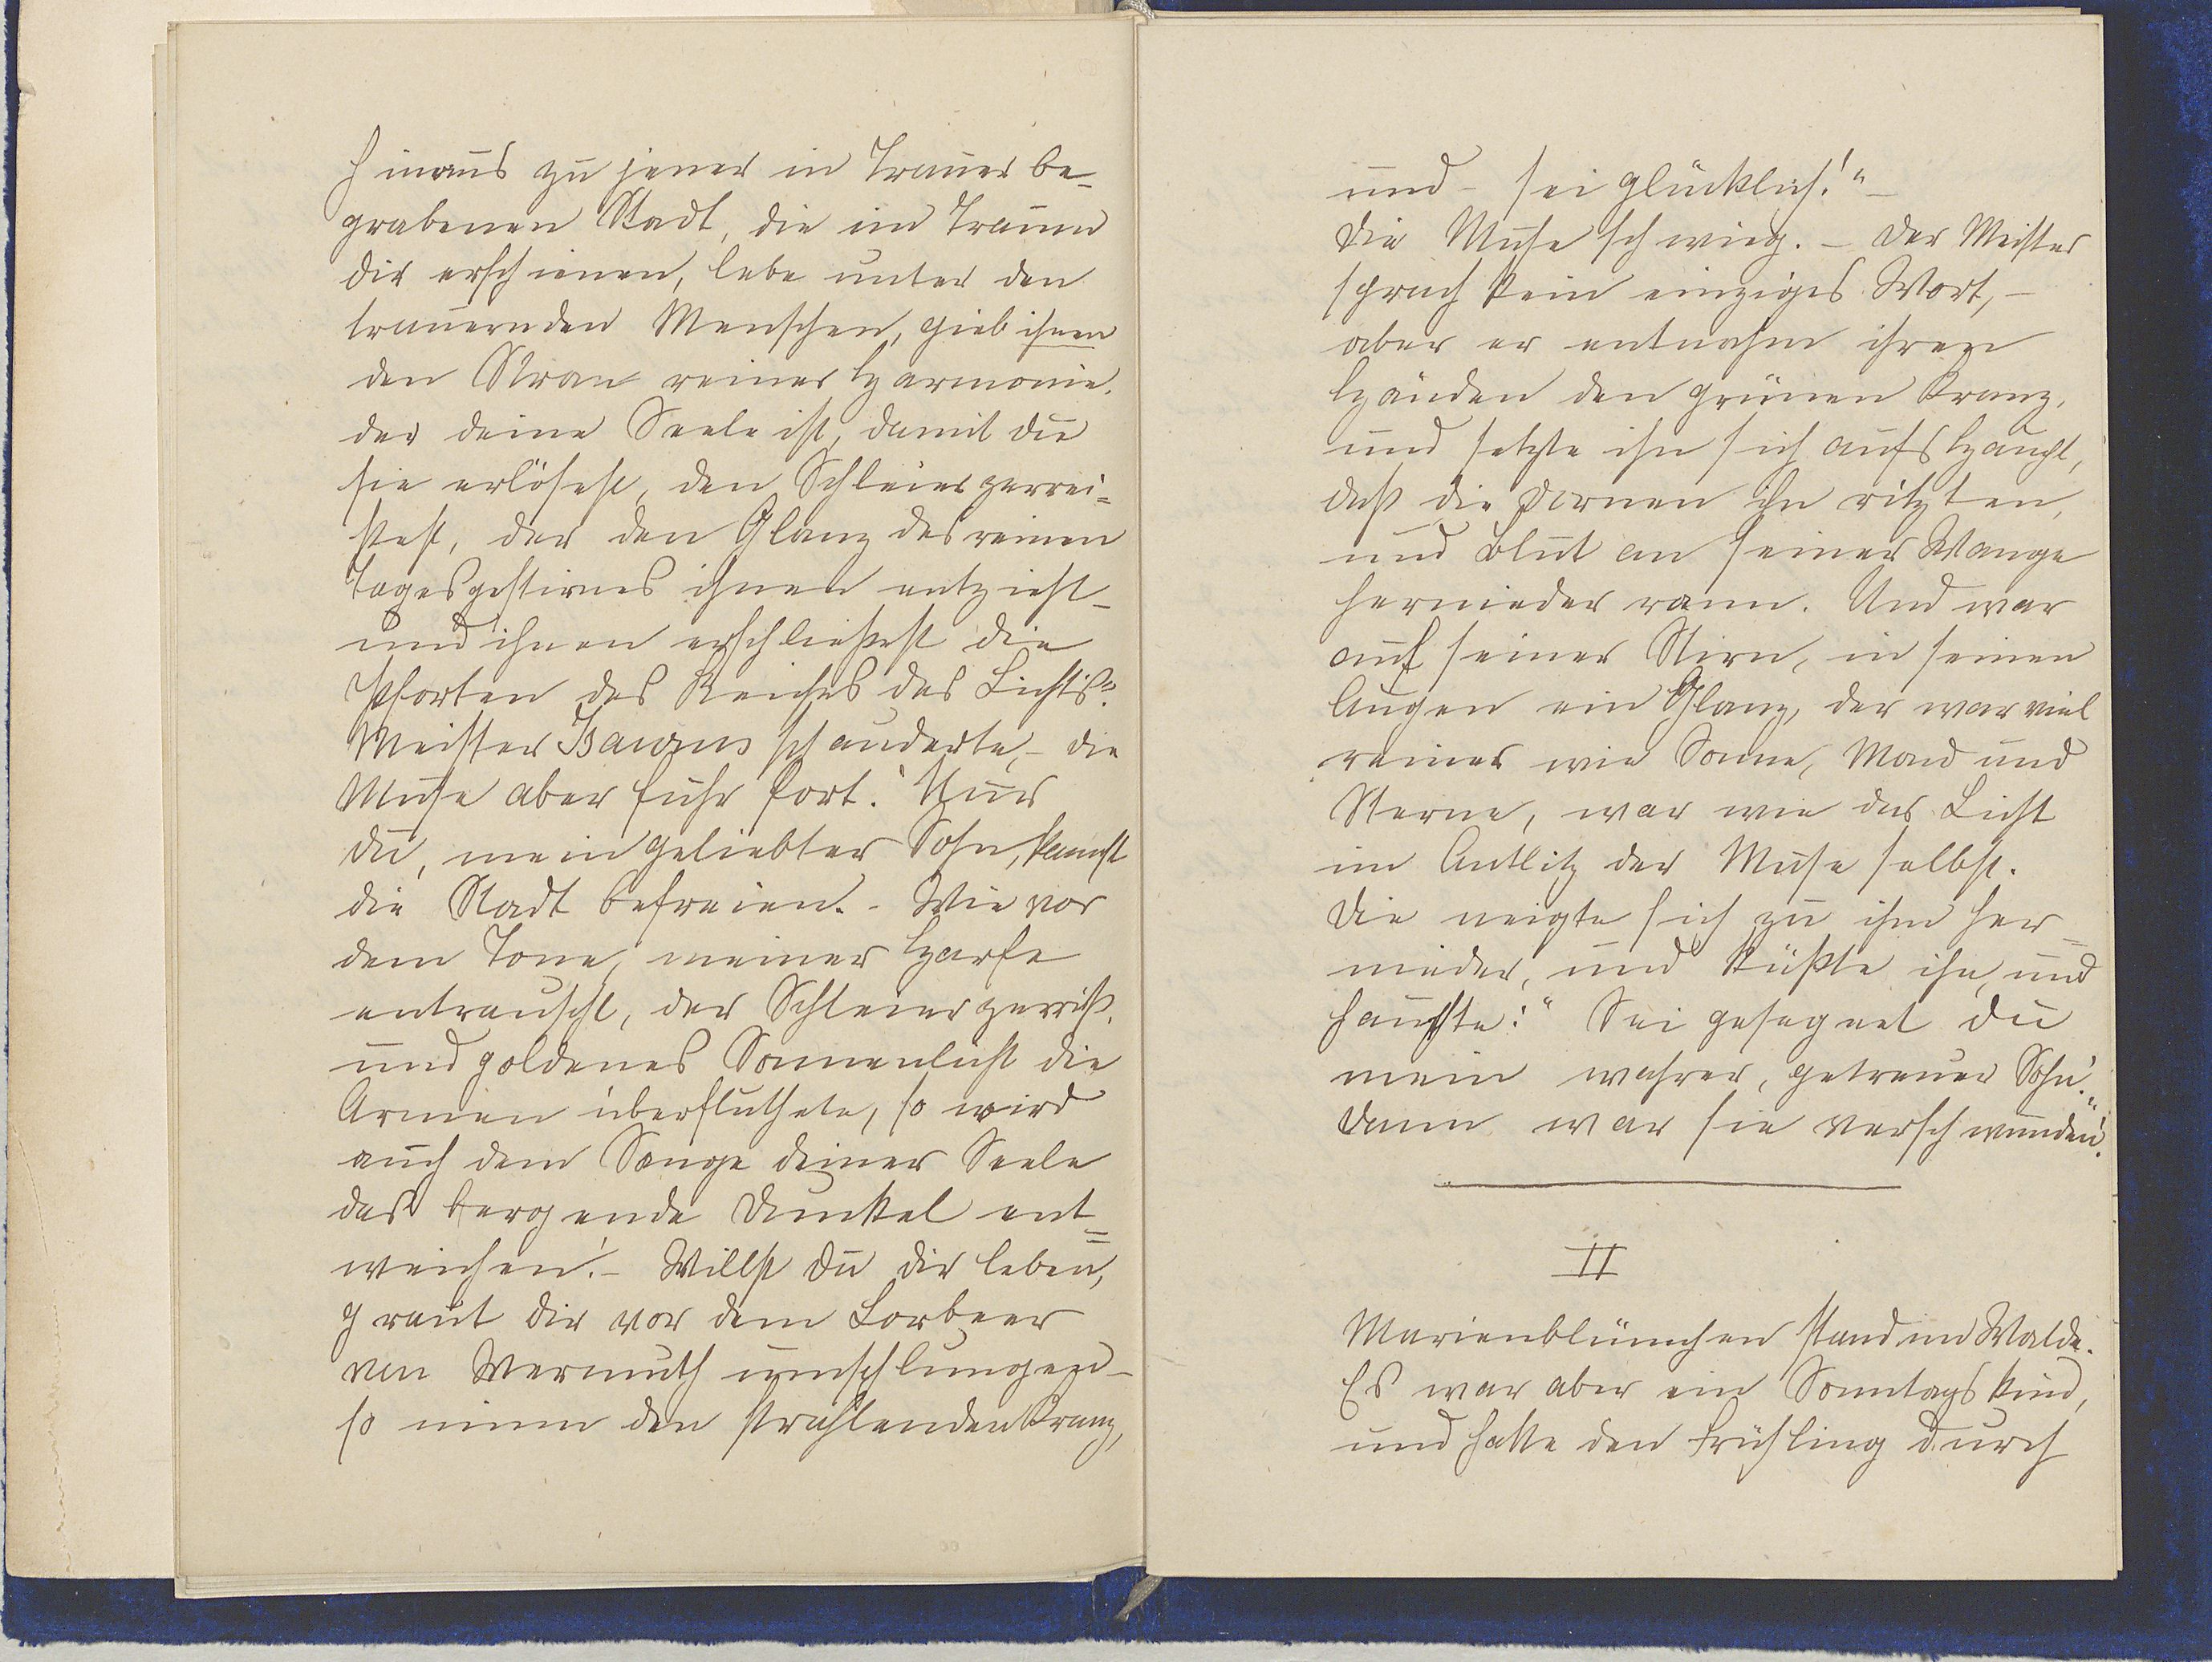 hinaus zu jener in Trauer be-
grabenen Stadt, die im Traum
dir erschienen, lebe unter den
trauernden Menschen, gieb ihnen
den Strom reiner Harmonie,
der deine Seele ist, damit du
sie erlösest, den Schleier zerrei-
ßest, der den Glanz des reinen
Tagesgestirnes ihnen entzieht-
und ihnen erschließest die
Pforten des Reiches des Lichts."
Meister schauderte,- die
Muse aber fuhr fort: Nur
du, mein geliebter Sohn, kannst
die Stadt befreien.- Wie vor
dem Tone, meiner Harfe
entrauscht, der Schleier zerriß,
und goldenes Sonnenlicht die
Armen überfluthete, so wird
auch dem Sange deiner Seele
das bergende Dunkel ent=
weichen.- Willst du dir leben,
graut dir vor dem Lorbeer
von Wermuth umschlungen-
so nimm den strahlenden Kranz,
und - sei glücklich!"-
Die Muse schwieg.- Der Meister
sprach kein einziges Wort,-
aber er entnahm ihren
Händen den grünen Kranz,
und setzte ihn sich aufs Haupt,
daß die Dornen ihn ritzten,
und Blut an seiner Wange
hernieder rann. Und war
auf seiner Stirn, in seinen
Augen ein Glanz, der war viel
reiner wie Sonne, Mond und
Sterne, war wie das Licht
im Antlitz der Muse selbst.
Die neigte sich zu ihm her-
nieder, und küßte ihn, und
hauchte:" Sei gesegnet du
mein wahrer, getreuer Sohn!"
Dann war sie verschwunden.
II
Marienblümchen stand im Walde.
Es war aber ein Sonntagskind,
und hatte den Frühling durch